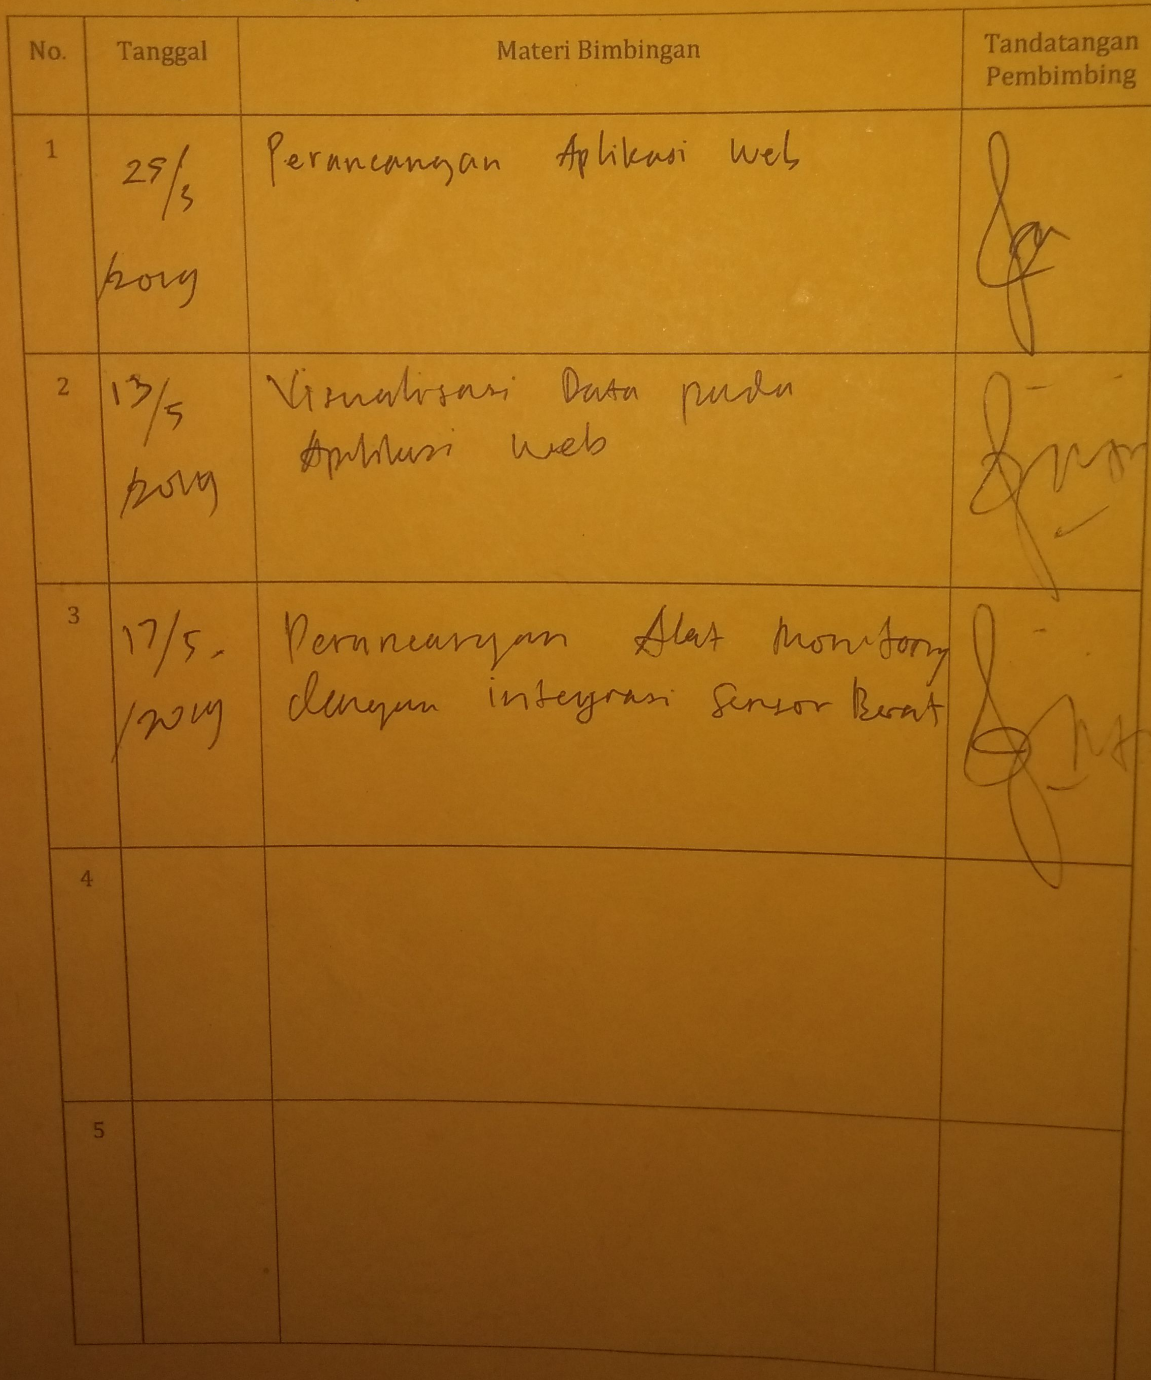 No. Tanggal Materi Bimbingan Tandatangan
Pembimbing
1 Perancangan Aplikasi Web
25/3
/2019
2 13/5 Visualisasi Data pada
Aplikasi Web
/2019
3 17/5. Perancangan Alat Monitoring
dengan integrasi Sensor Berat
/2019
4
5